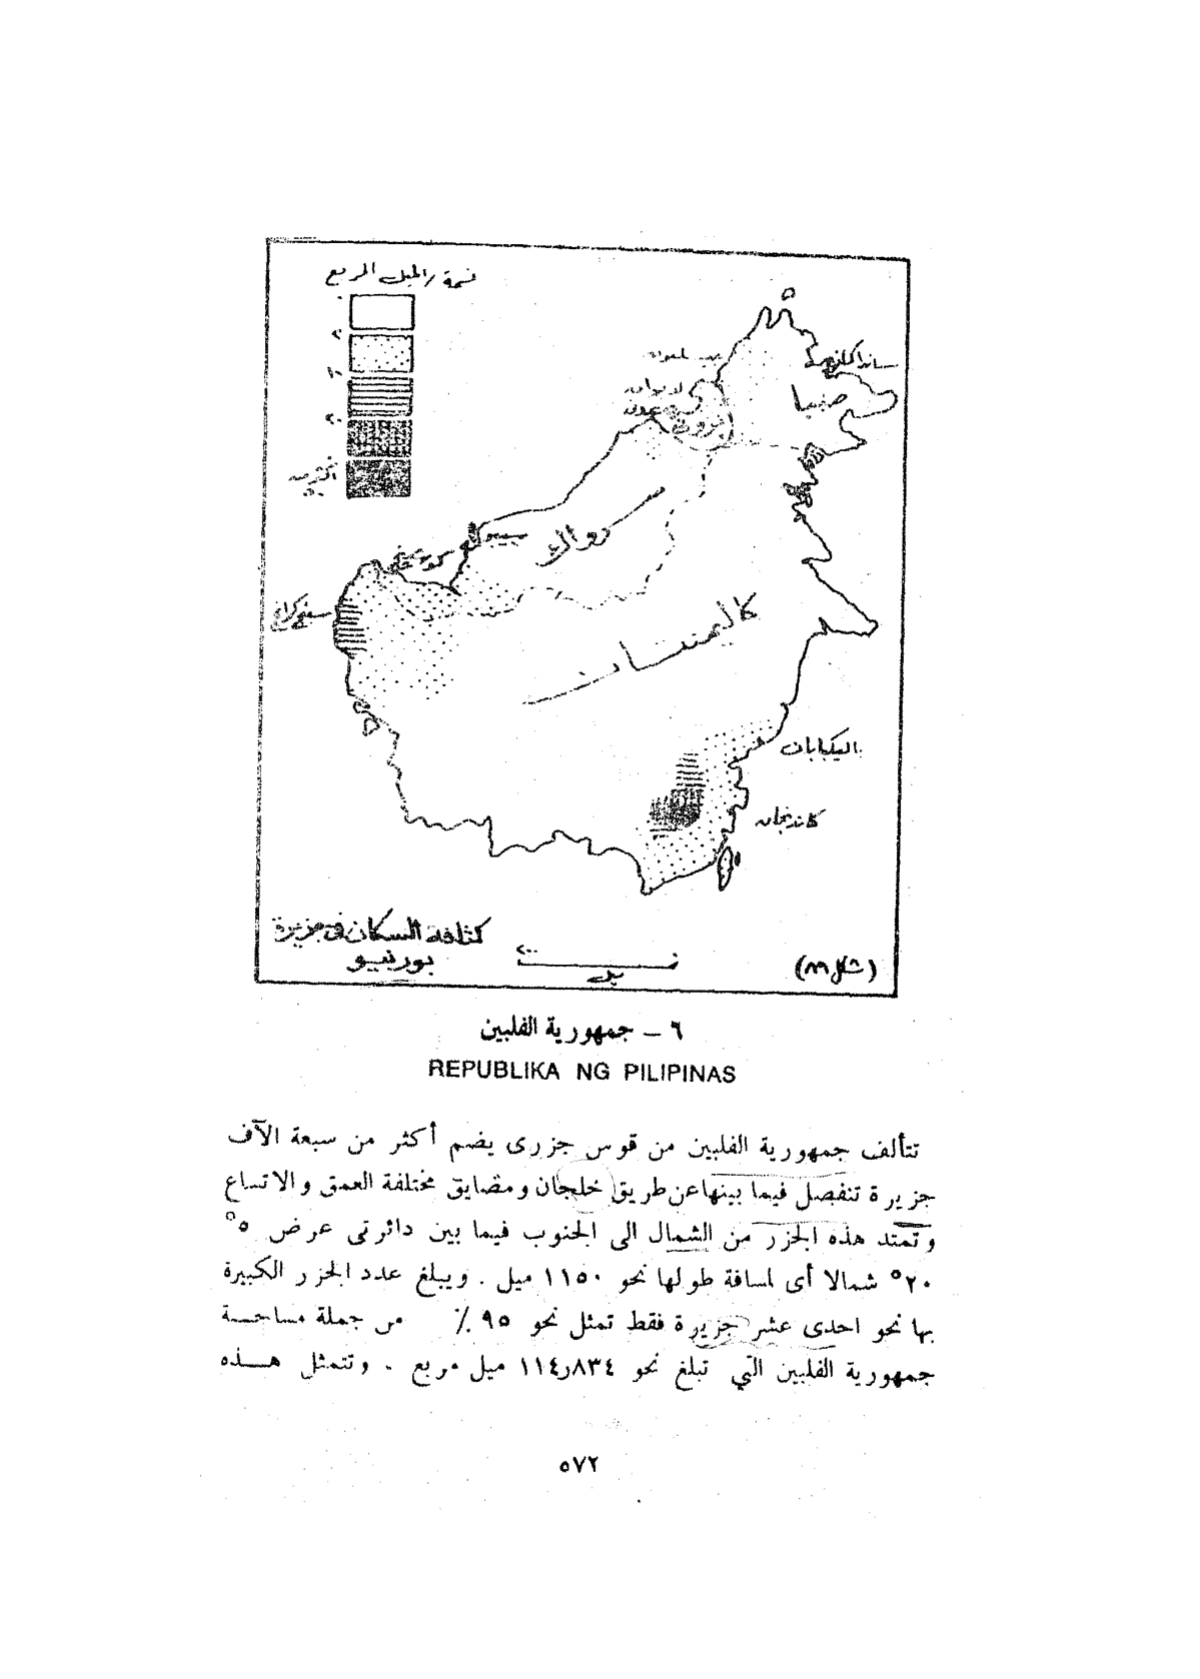 نسمة/الميل المربع
أكثر من
ساندا كان
صبا
سيبو
كاليمنتان
كثافة السكان فى جزيرة
بورنيو
ميل
(شكل ٨٩)
٦ ــ جمهورية الفلبين
REPUBLIKA NG PILIPINAS
تتألف جمهورية الفلبين من قوس جزرى يضم أكثر من سبعة الآف
جزيرة تنفصل فيما بينها عن طريق خلجان ومضايق مختلفة العمق والاتساع
وتمتد هذه الجزر من الشمال الى الجنوب فيما بين دائرتى عرض ٥°
٢٠° شمالا أى لمسافة طولها نحو ١١٥٠ ميل . ويبلغ عدد الجزر الكبيرة
بها نحو احدى عشر جزيرة فقط تمثل نحو ٩٥ ٪ من جملة مساحـة
جمهورية الفلبين التي تبلغ نحو ١١٤٫٨٣٤ ميل مربع . وتتمثل هـــذه
٥٧٢